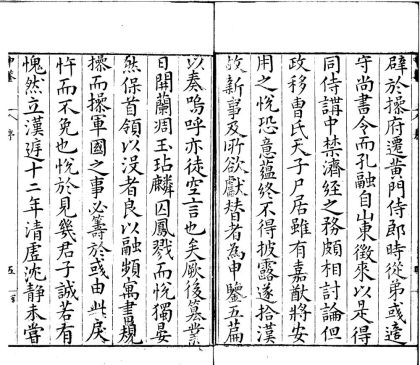 辟於操府遷黃門侍郎時從弟彧遷
守尚書令而孔融自山東徵來以是得
同侍講中禁濟經之務頗相討論但
政移曹氏天子尸居雖有嘉猷將安
用之悅恐意蘊終不得披露遂拾漢
故新事及所欲獻替者為申鑒五篇
以奏嗚呼亦徒空言也矣厥後篡業
日開蘭凋玉玷麟囚鳳戮而悅獨晏
然保首領以沒者良以融頻寓書規
操而操軍國之事必籌於彧由此戾
忤而不免也悅於見幾君子誠若有
愧然立漢廷十二年清虛沈靜未嘗